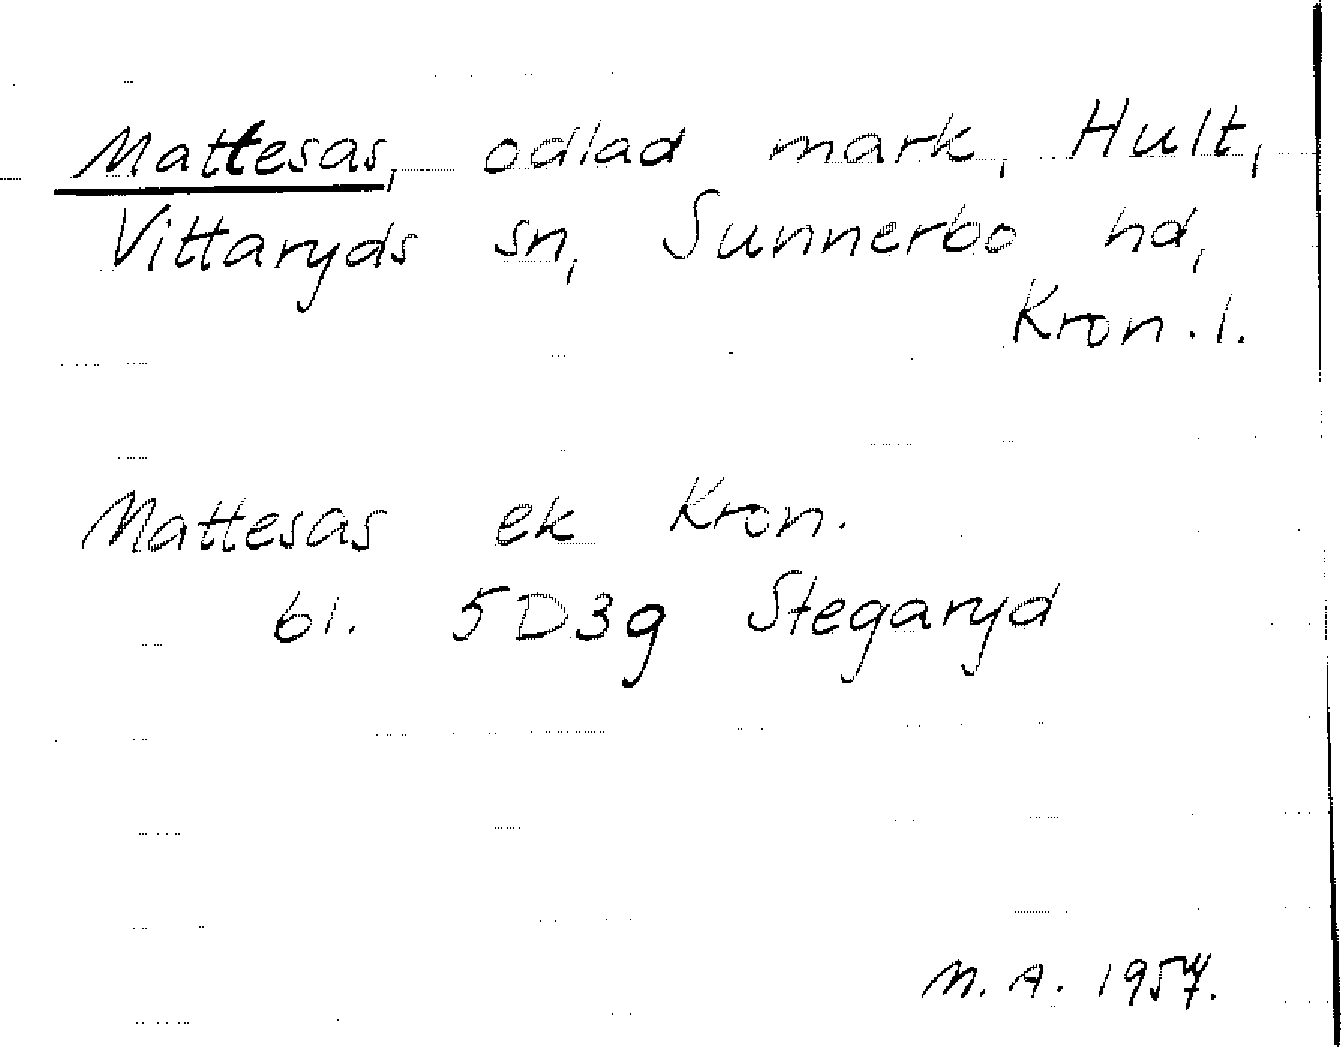 Mattesas, odlad mark, Hult,
Vittaryds sn, Sunnerbo hd,
Kron. l.
Mattesas ek Kron.
bl. 5D3g Stegaryd
M. A. 1957.